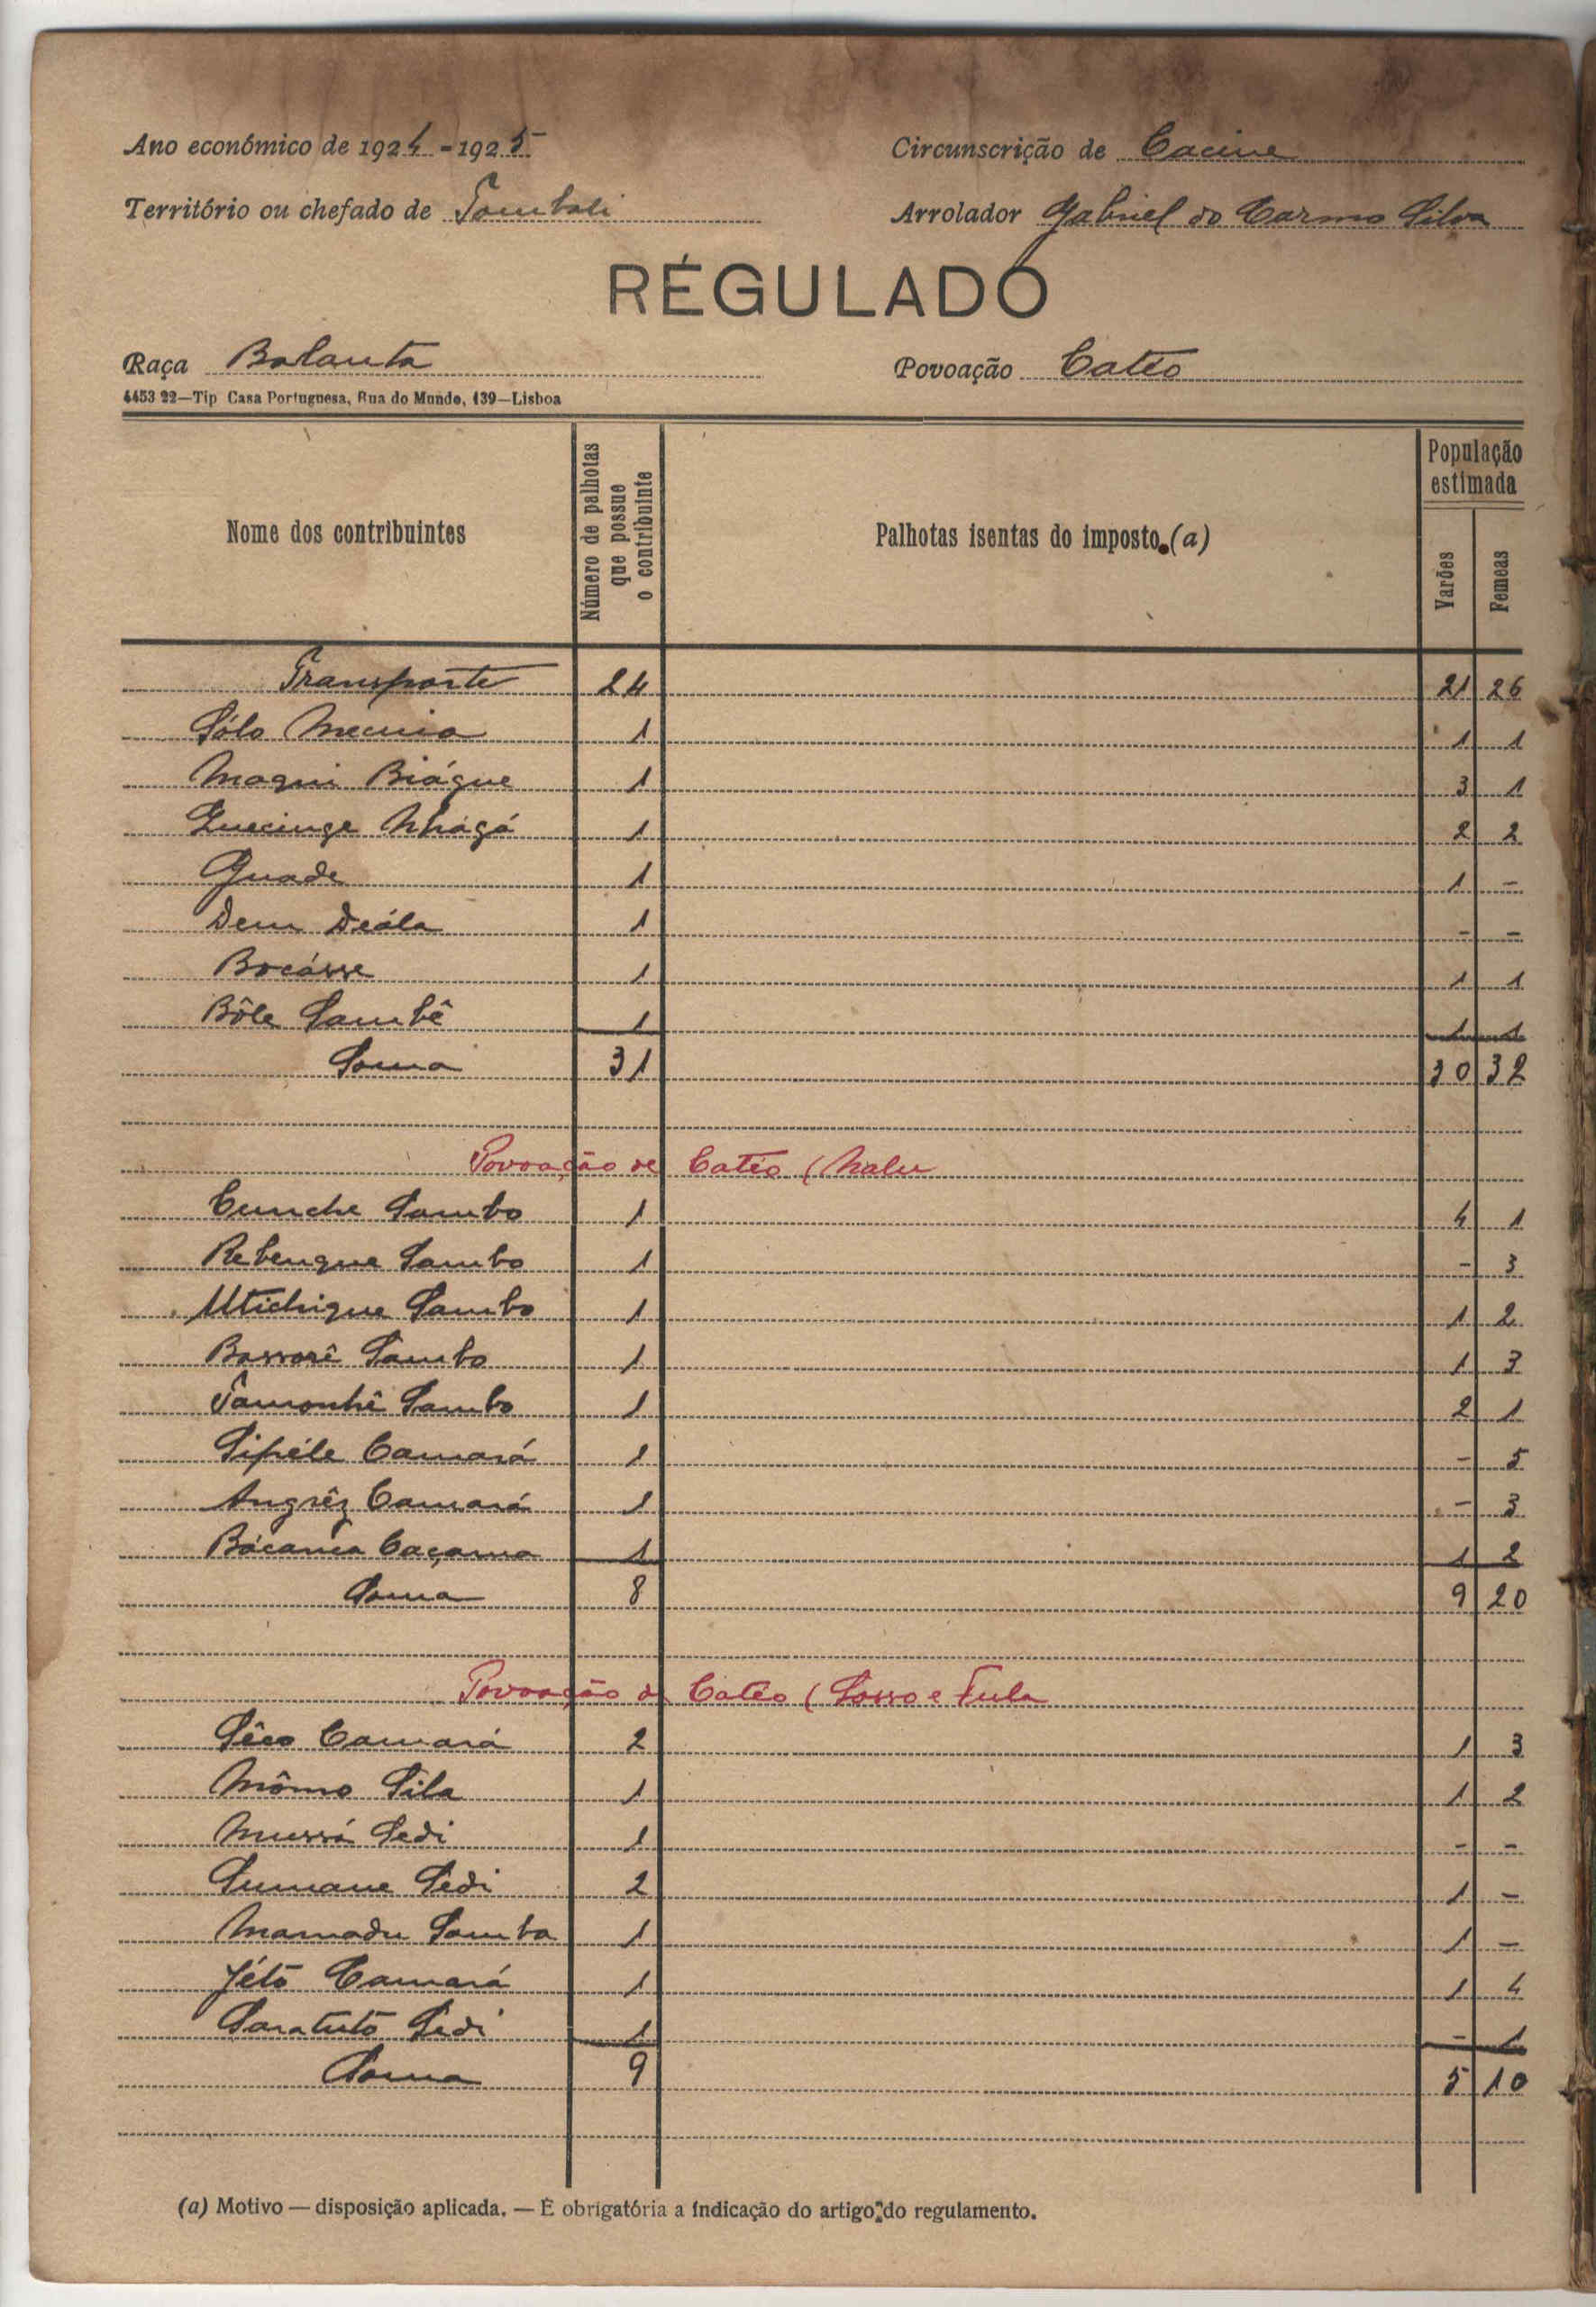 Ano económico de 1924-1925
Circunscrição de Cacine
Território ou chefado de Tombali
Arrolador Gabriel do Carmo Silva
RÉGULADO
Raça Balanta
Povoação Catéo
4453 22—Tip Casa Portuguesa, Rua do Mundo, 139—Lisboa
Nome dos contribuintes
Número de palhotas que possue o contribuinte
Palhotas isentas do imposto (a)
População estimada
Varões
Femeas
Transporte 24 21 26
Sólo 1 1 1
Maqui Biágue 1 3 1
Nhágá 1 2 2
Guade 1 1 -
Dem Deála 1 - -
Bocásse 1 1 1
Bôle Sambê 1 1 1
Soma 31 30 32
Povoação de Catéo (Nalu
Cunche Sambo 1 4 1
Rebengue Sambo 1 - 3
Sambo 1 1 2
Bassorê Sambo 1 1 3
Tamonhê Sambo 1 2 1
Sipéle Camará 1 - 5
Angrêz Camará 1 - 3
Bácanca Caçamo 1 1 2
Soma 8 9 20
Povoação de Catéo (Sosso e Fula
Sêco Camará 2 1 3
Mômo Sila 1 1 2
Mussá Sedi 1 - -
Sumane Sedi 2 1 -
Mamadu Samba 1 1 -
Jétō Camará 1 1 4
Saratutō Sedi 1 - 1
Soma 9 5 10
(a) Motivo — disposição aplicada. — É obrigatória a indicação do artigo do regulamento.